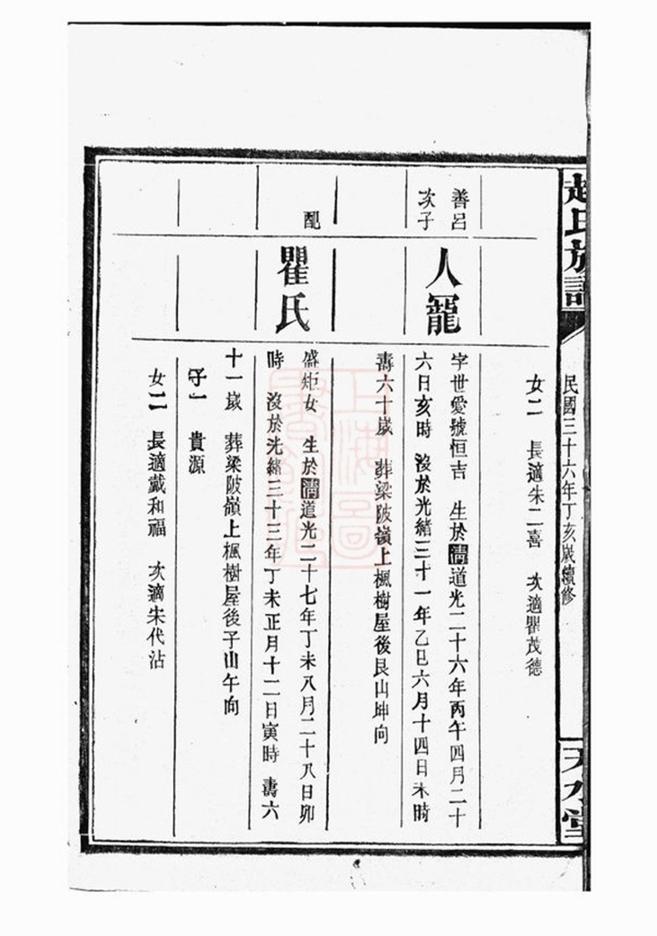 趙氏族譜
民國三十六年丁亥歲續修
天水堂
女二 長適朱二喜 次適瞿茂德
善呂
次子
人寵
字世愛號恒吉 生於清道光二十六年丙午四月二十
六日亥時 沒於光緒三十一年乙巳六月十四日未時
壽六十歲 葬梁陂嶺上楓樹屋後艮山坤向
配
瞿氏
盛矩女 生於清道光二十七年丁未八月二十八日卯
時 沒於光緒三十三年丁未正月十二日寅時 壽六
十一歲 葬梁陂嶺上楓樹屋後子山午向
子一 貴源
女二 長適戴和福 次適朱代沾
上海圖
書館藏